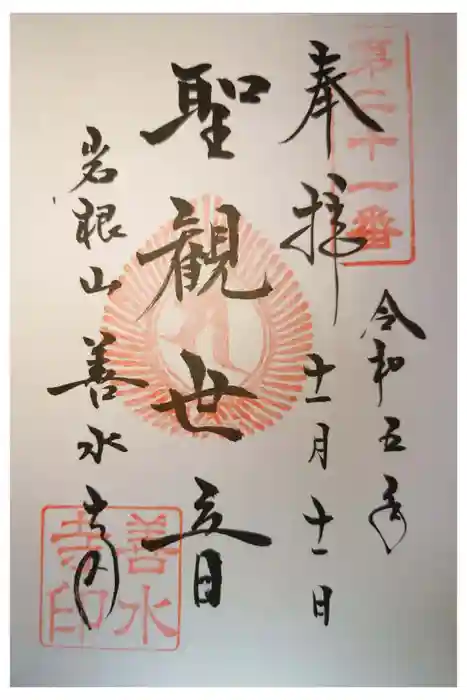 第二十一番
奉拝
令和五年
十一月十一日
聖観世音
岩根山善水寺
善水
寺印